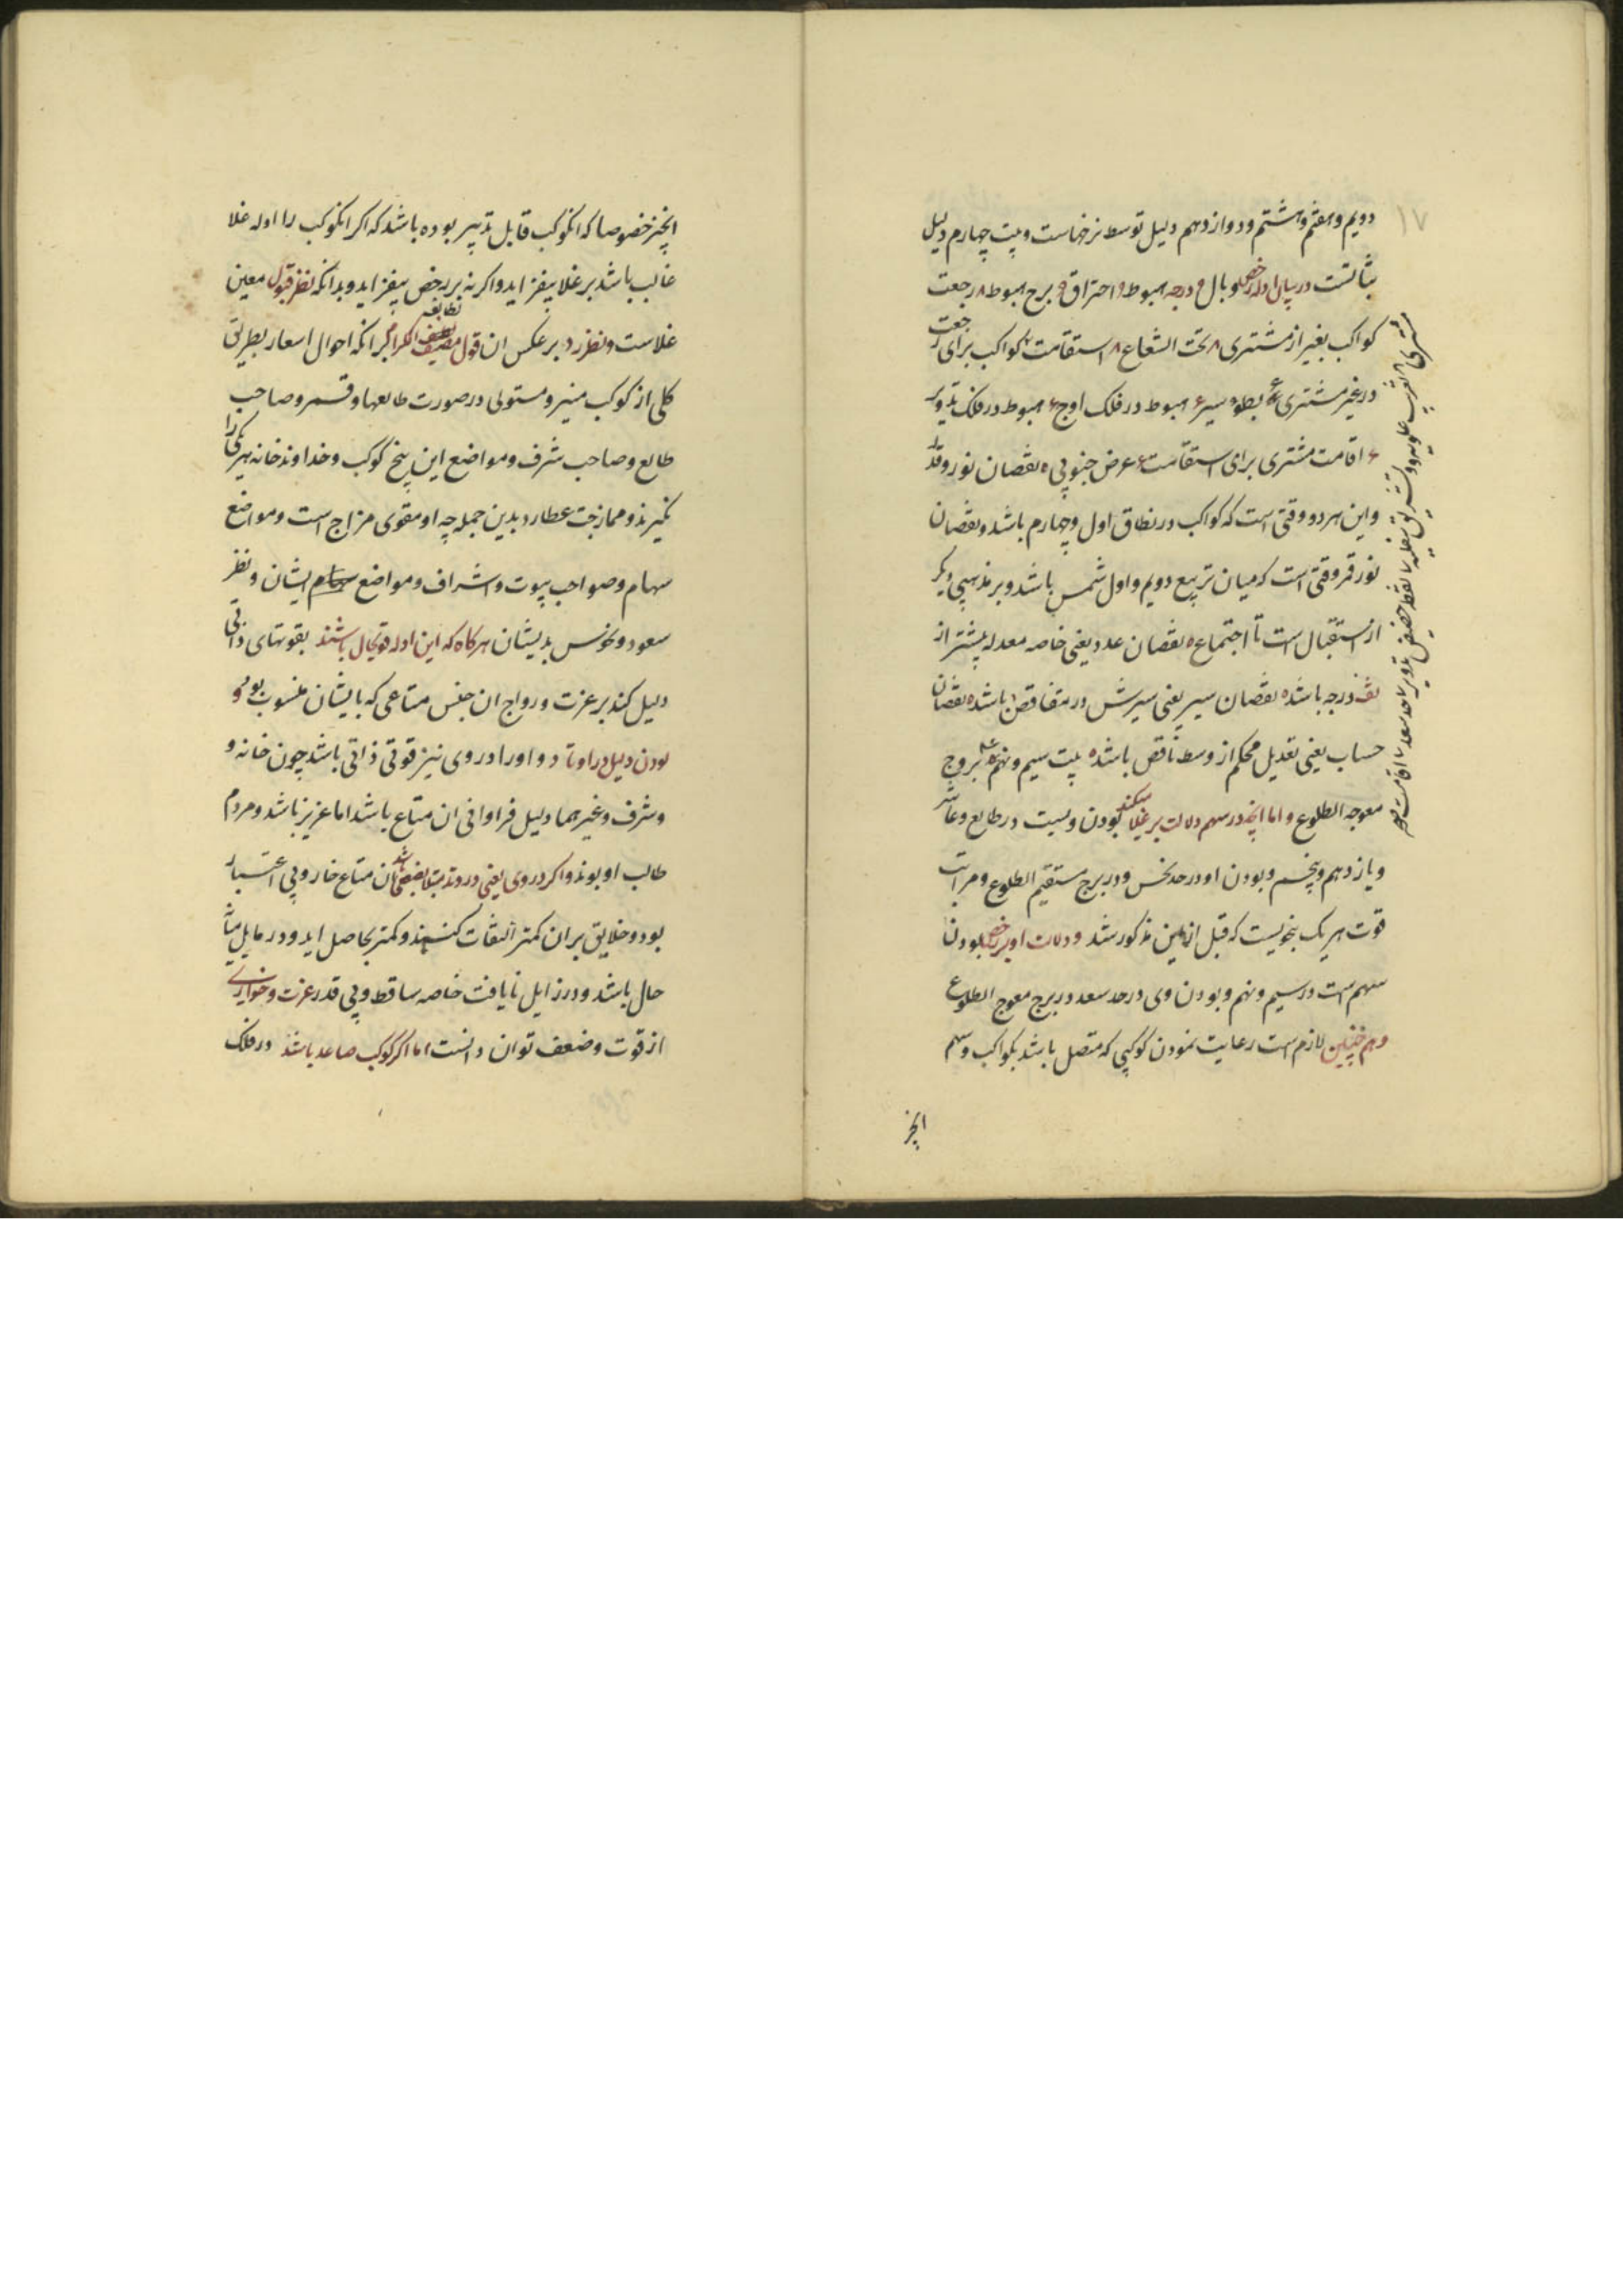 ۱۷
دویم و هفتم و هشتم و دوازدهم دلیل توسط نرخهاست و بیت چهارم دلیل
ثباتست در بیان ادله رخص وبال ۹ درجه هبوط ۹ احتراق ۹ برج هبوط ۸ رجعت
کواکب بغیر از مشتری ۸ تحت الشعاع ۸ استقامت کواکب برای رجعت
در غیر مشتری بطوء سیر ۶ هبوط در فلک اوج ۶ هبوط در فلک تدویر
۶ اقامت مشتری برای استقامت ۶ عرض جنوبی ۵ نقصان نور و قدر
و این هر دو وقتی است که کواکب در نطاق اول و چهارم باشد و نقصان
نور قمر وقتی است که میان تربیع دویم و اول شمس باشد و بر مذهبی دیگر
از استقبال است تا اجتماع ۵ نقصان عدد یعنی خاصه معدله بیشتر از
قف درجه باشد ۵ نقصان سیر یعنی سیرش در تناقص باشد ۵ نقصان
حساب یعنی تعدیل محکم از وسط ناقص باشد ۵ بیت سیم و نهم بروج
معوجه الطلوع و اما انچه در سهم دلالت بر غلا میکند بودن ویست در طالع و عاشر
و یازدهم و پنجم و بودن او در حد نحس و در برج مستقیم الطلوع و مراتب
قوت هر یک بنحویست که قبل ازین مذکور شد و دلالت او بر رخص بودن
سهم است در سیم و نهم و بودن وی در حد سعد در برج معوج الطلوع
و هم چنین لازم است رعایت نمودن کوکبی که متصل باشد بکواکب و سهم
انچیز
انچیز خصوصا که انکوکب قابل تدبیر بوده باشد که اکر انکوکب را ادله غلا
غالب باشد بر غلا بیفزاید و اکر نه بر رخص بیفزاید و بدانکه نظر قبول معین
غلاست و نظر رد بر عکس ان قول مصنف انکه احوال اسعار بطریق
کلی از کوکب منیر و مستولی در صورت طالعها و قمر و صاحب
طالع و صاحب شرف و مواضع این پنج کوکب و خداوند خانه هر یکی را
کیرند و ممازجت عطارد بدین جمله چه او مقوی مزاج است و مواضع
سهام و صواحب بیوت و اشراف و مواضع سهام ایشان و نظر
سعود و نحوس بدیشان هرکاه که این ادله قویحال باشند بقوتهای ذاتی
دلیل کند بر عزت و رواج ان جنس متاعی که بایشان منسوب بود و
بودن دلیل در اوتاد و او را در وی نیز قوتی ذاتی باشد چون خانه و
و شرف و غیرهما دلیل فراوانی ان متاع باشد اما عزیز باشد و مردم
طالب او بوند و اکر در وی یعنی در وتد مبتلا بضعفی باشد ان متاع خار و بی اعتبار
بود و خلایق بران کمتر التفات کنند و کمتر بحاصل اید و در مایل میانه
حال باشد و در زایل نایافت خاصه ساقط و بی قدر عزت و خواری
از قوت و ضعف توان دانست اما اکر کوکب صاعد باشد در فلک